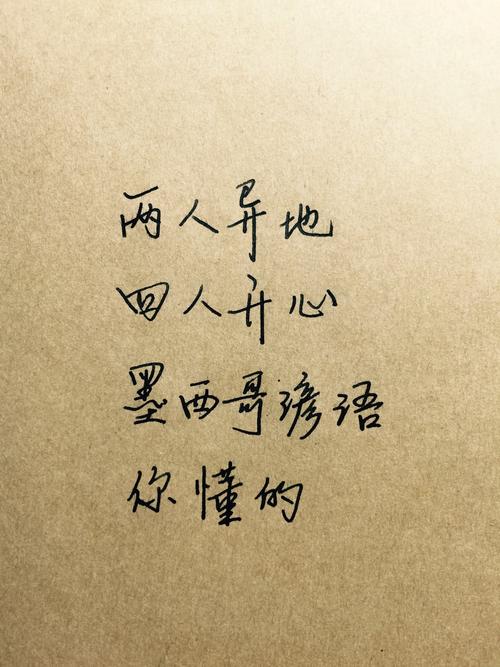 两人异地
四人开心
墨西哥谚语
你懂的